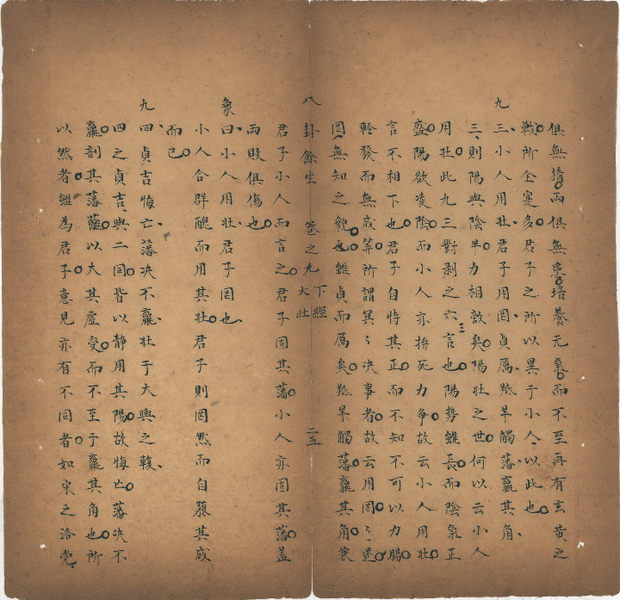 俱無猜兩俱無患培養元氣而不至再有玄黃之
戰所全寔多君子之所以異于小人以此也
九三小人用壯君子用罔貞厲羝羊觸藩羸其角
三則陽與陰半力相敵矣陽壯之世何以云小人
用壯此九三對剥之六三言也陽勢雖長而陰氣正
盛陽欲凌陰而小人亦拚死力争故云小人用壯
言不相下也君子自恃其正而不知不可以力勝
輕發而無成筭所謂冥冥决事者故云用罔罔
罔無知之貌也雖貞而厲矣羝羊觸藩羸其角
八卦餘生 卷之九 下經 大壯 二五
君子小人而言之君子固其藩小人亦固其藩蓋
兩敗俱傷也
象曰小人用壯君子罔也
小人合群醜而用其壯君子則罔然而自蕩其成
而已
九四貞吉悔亡藩决不羸壯于大輿之輹
四之貞吉與二同皆以静用其陽故悔亡藩决不
羸剖其藩籬以大其虛受而不至于羸其角也所
以然者雖為君子意見亦有不同者如宋之洛党